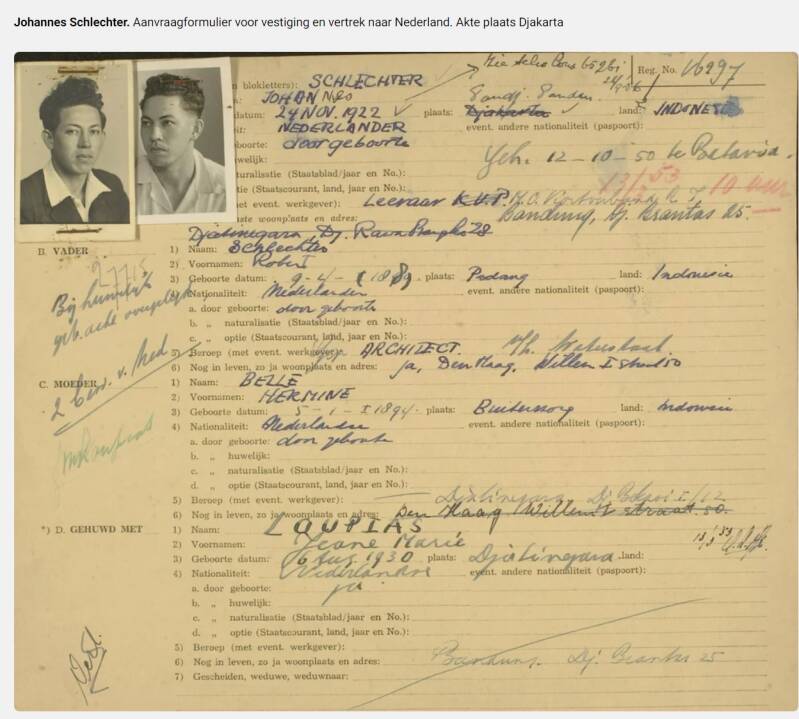 Johannes Schlechter. Aanvraagformulier voor vestiging en vertrek naar Nederland. Akte plaats Djakarta
Reg. No. 16297
n blokletters): SCHLECHTER
JOHANNES
datum: 24 NOV. 1922 plaats: Djakarta land: INDONESIË
NEDERLANDER event. andere nationaliteit (paspoort):
boorte: door geboorte
welijk: Geh. 12-10-50 te Batavia.
turalisatie (Staatsblad/jaar en No.):
tie (Staatscourant, land, jaar en No.): 10 uur
et event. werkgever): Leeraar
tste woonplaats en adres: Bandung, Dj. Brantas 25.
Djatinegara, Dj. 28
B. VADER 1) Naam: Schlechter
2) Voornamen: Robert
3) Geboorte datum: 9-4- plaats: Padang land: Indonesie
4) Nationaliteit: Nederlander event. andere nationaliteit (paspoort):
Bij huwelijk
a. door geboorte: door geboorte
geb. acte
b. „ naturalisatie (Staatsblad/jaar en No.):
c. „ optie (Staatscourant, land, jaar en No.):
5) Beroep (met event. werkgever): ARCHITECT. Waterstaat
6) Nog in leven, zo ja woonplaats en adres: ja, Den Haag, Willem I straat 50
C. MOEDER 1) Naam: BELLE
2) Voornamen: HERMINE
3) Geboorte datum: 5-1-1894 plaats: Buitenzorg land: Indonesie
4) Nationaliteit: Nederlandse event. andere nationaliteit (paspoort):
a. door geboorte: door geboorte
b. „ huwelijk:
c. „ naturalisatie (Staatsblad/jaar en No.):
d. „ optie (Staatscourant, land, jaar en No.):
5) Beroep (met event. werkgever): Djatinegara
6) Nog in leven, zo ja woonplaats en adres: Den Haag Willem I straat 50.
*) D. GEHUWD MET 1) Naam: LOUPIAS
2) Voornamen: Leane Marie
3) Geboorte datum: 6 Aug 1930 plaats: Djatinegara land:
4) Nationaliteit: Nederlandse event. andere nationaliteit (paspoort):
a. door geboorte: ja
b. „ huwelijk:
c. „ naturalisatie (Staatsblad/jaar en No.):
d. „ optie (Staatscourant, land, jaar en No.):
5) Beroep (met event. werkgever):
6) Nog in leven, zo ja woonplaats en adres: Bandung. Dj. Brantas 25
7) Gescheiden, weduwe, weduwnaar: